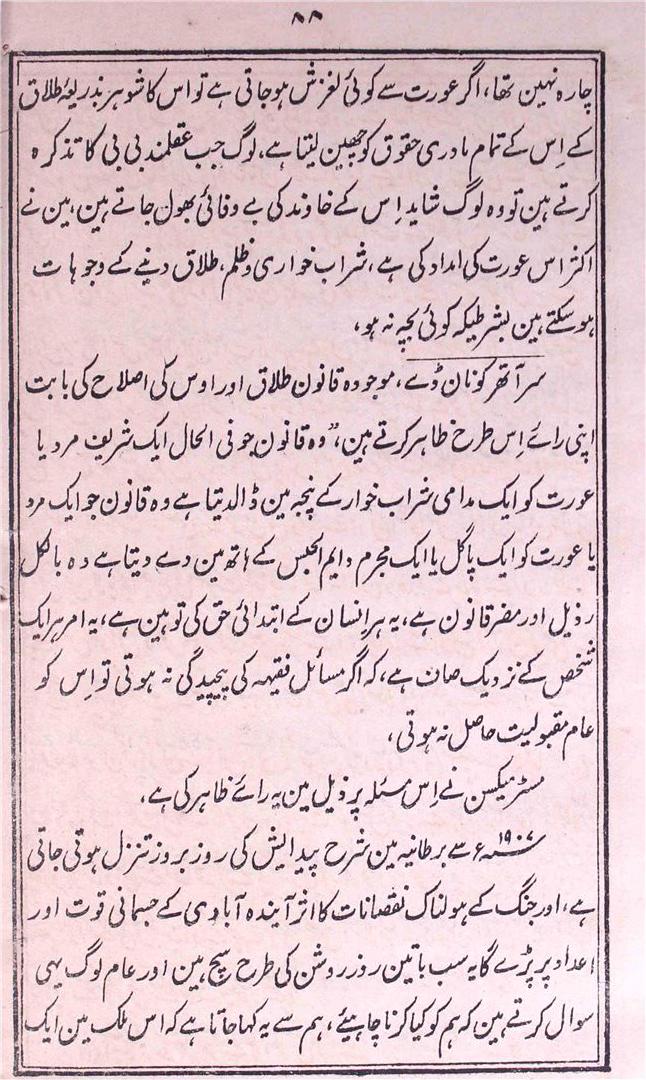 ۸۸
چارہ نہین تھا، اگر عورت سے کوئی لغزش ہوجاتی ہے تو اس کا شوہر بذریعۂ طلاق
کے اِس کے تمام مادری حقوق کو چھین لیتا ہے، لوگ جب عقلمند بی بی کا تذکرہ
کرتے ہین تو وہ لوگ شاید اِس کے خاوند کی بے وفائی بھول جاتے ہین، مین نے
اکثر اس عورت کی امداد کی ہے، شراب خواری و ظلم، طلاق دینے کے وجوہات
ہوسکتے ہین بشرطیکہ کوئی بچہ نہ ہو،
سر آتھر کونان ڈے، موجودہ قانون طلاق اور اوس کی اصلاح کی بابت
اپنی رائے اِس طرح ظاہر کرتے ہین، "وہ قانون جو فی الحال ایک شریف مرد یا
عورت کو ایک مدامی شراب خوار کے پنجہ مین ڈالدیتا ہے وہ قانون جو ایک مرد
یا عورت کو ایک پاگل یا ایک مجرم دایم الحبس کے ہاتھ مین دے دیتا ہے وہ بالکل
رذیل اور مضر قانون ہے، یہ ہر انسان کے ابتدائی حق کی توہین ہے، یہ امر ہر ایک
شخص کے نزدیک صاف ہے، کہ اگر مسائل فقیہہ کی پیچیدگی نہ ہوتی تو اِس کو
عام مقبولیت حاصل نہ ہوتی،
مسٹر میکسن نے اِس مسئلہ پر ذیل مین یہ رائے ظاہر کی ہے،
۱۹۰۷ء سے برطانیہ مین شرح پیدایش کی روز بروز تنزل ہوتی جاتی
ہے، اور جنگ کے ہولناک نقصانات کا اثر آیندہ آبادی کے جسمانی قوت اور
اعداد پر پڑے گا یہ سب باتین روز روشن کی طرح سچ ہین اور عام لوگ یہی
سوال کرتے ہین کہ ہم کو کیا کرنا چاہیئے، ہم سے یہ کہا جاتا ہے کہ اس ملک مین ایک